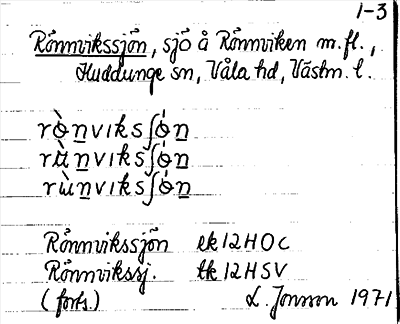 1-3
Rönnvikssjön, sjö å Rönnviken m.fl.,
Huddunge sn, Våla hd, Västm. l.
rò̱nviksʃó̱n
rʉ̀nviksʃó̱n
rùnviksʃó̱n
Rönnvikssjön ek12HOc
Rönnvikssj. tk12HSV
(forts.) L. Jonson 1971